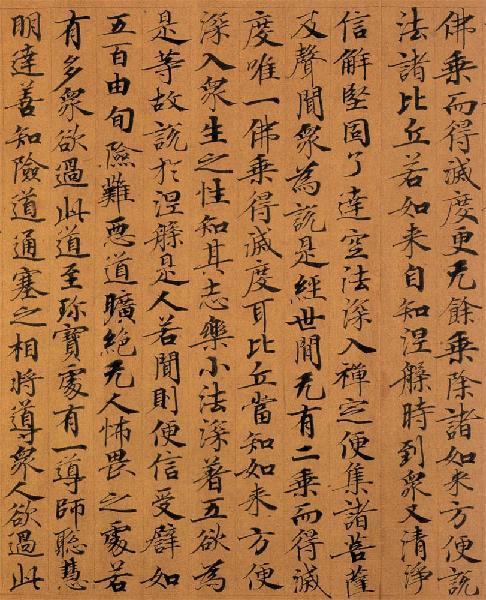 佛乘而得滅度更无餘乘除諸如来方便說
法諸比丘若如来自知涅槃時到衆又清淨
信解堅固了達空法深入禪定便集諸菩薩
及聲聞衆為說是經世間无有二乘而得滅
度唯一佛乘得滅度耳比丘當知如来方便
深入衆生之性知其志樂小法深著五欲為
是等故說於涅槃是人若聞則便信受譬如
五百由旬險難惡道曠絕无人怖畏之處若
有多衆欲過此道至珎寶處有一導師聡慧
明達善知險道通塞之相將導衆人欲過此